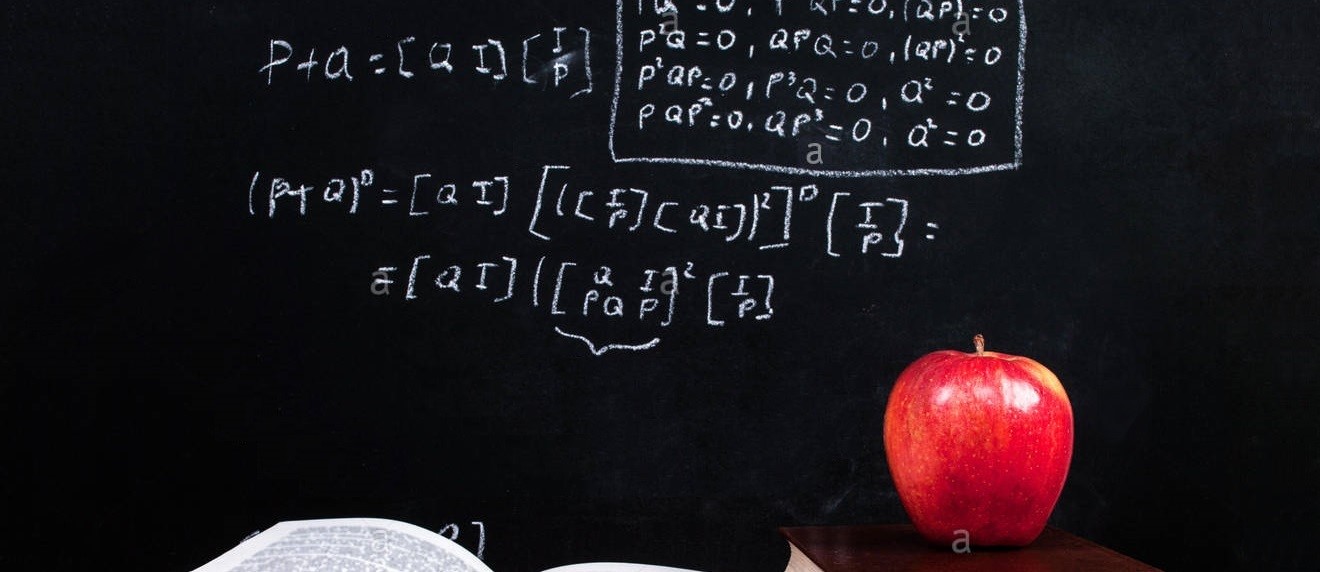 P+Q = [Q I] [I P]
P²Q=0, QPQ=0, (QP)²=0
P²QP=0, P³Q=0, Q²=0
PQP²=0, QP³=0, Q²=0
(P+Q)ᴰ = [Q I] [([I P] [Q I])²]ᴰ [I P] =
= [Q I] ([Q I PQ P]² [I P]